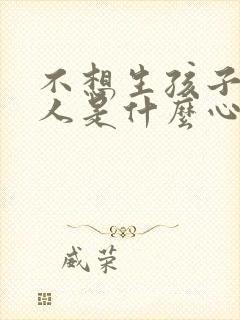 不想生孩子
人是什麼心
威荣